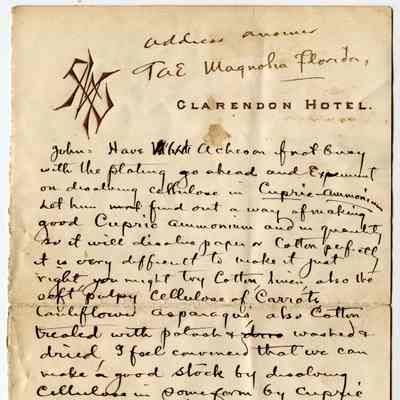 Address answer
TAE Magnolia Florida,
CLARENDON HOTEL.
John: Have Acheson if not busy
with the plating go ahead and Experiment
on disolving cellulose in Cupric-ammonium
Let him find out a way of making
good Cupric ammonium and in quantity
so it will disolve paper or Cotton perfectly
it is very difficult to make it just
right you might try Cotton, linen, also the
soft pulpy Cellulose of Carrots
Cauliflower Asparagus also Cotton
treated with potash & washed &
dried, I feel convinced that we can
make a good stock by disolving
Cellulose in some form by Cupric